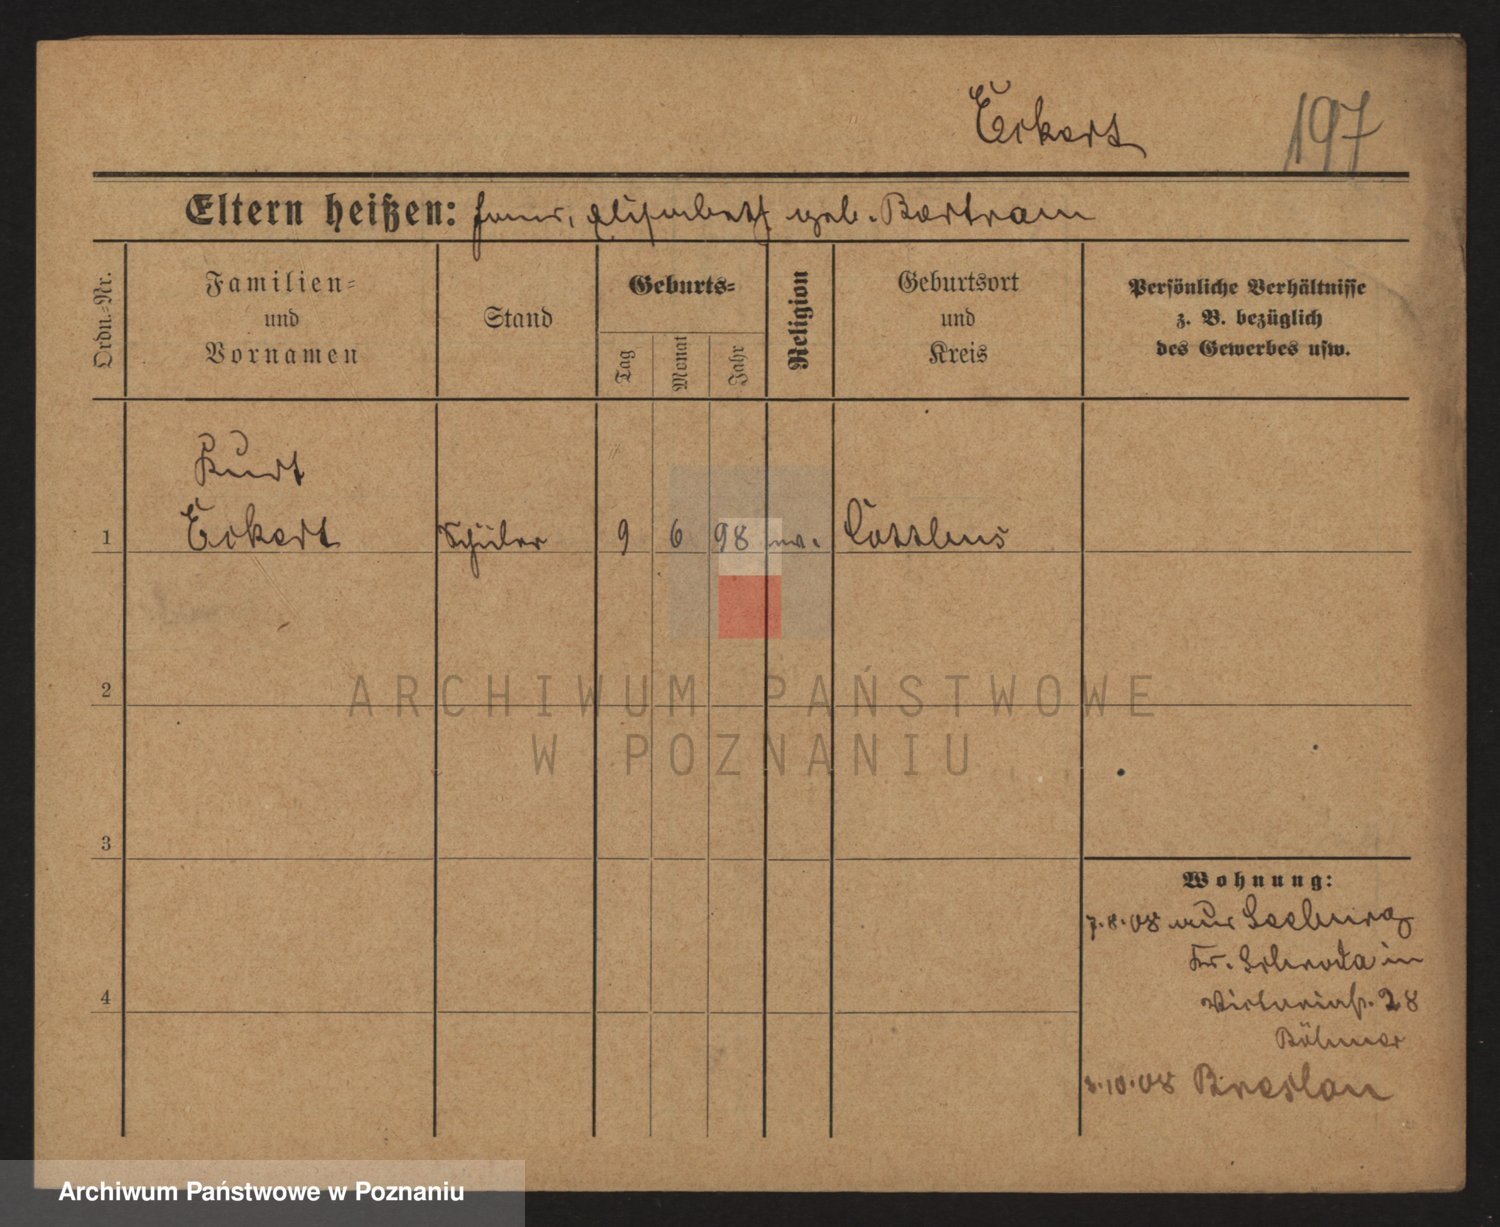 Eckert 197
Eltern heißen: Hans, Elisabeth geb. Bartram
Ordn.=Nr.
Familien=
und
Vornamen
Stand
Geburts=
Tag
Monat
Jahr
Religion
Geburtsort
und
Kreis
Persönliche Verhältnisse
z. B. bezüglich
des Gewerbes usw.
Kurt
1 Eckert Schüler 9 6 98 ev. Cottbus
2
ARCHIWUM PAŃSTWOWE
W POZNANIU
3
Wohnung:
7.8.08 aus Seeburg
Kr. Schroda in
Victoriastr. 28
Böhmer
3.10.08 Breslau
4
Archiwum Państwowe w Poznaniu